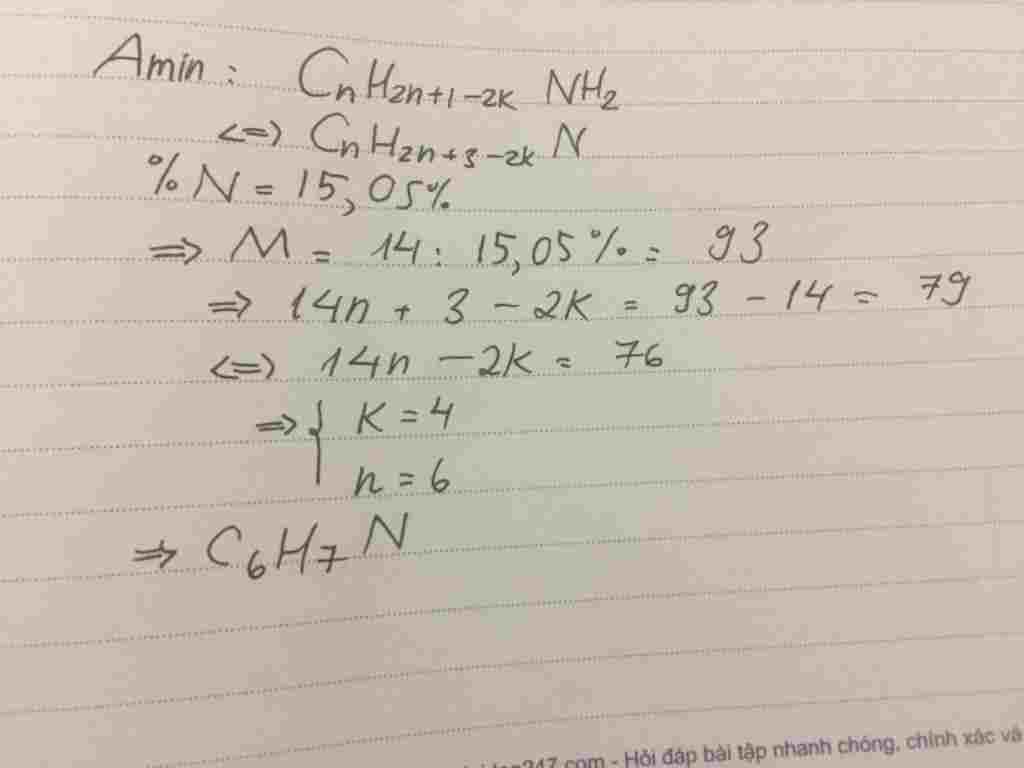 Amin : CnH2n+1-2k NH2
<=> CnH2n+3-2k N
% N = 15,05%
=> M = 14 : 15,05% = 93
=> 14n + 3 - 2k = 93 - 14 = 79
<=> 14n - 2k = 76
=> { k = 4
n = 6
=> C6H7N
247.com - Hỏi đáp bài tập nhanh chóng, chính xác và